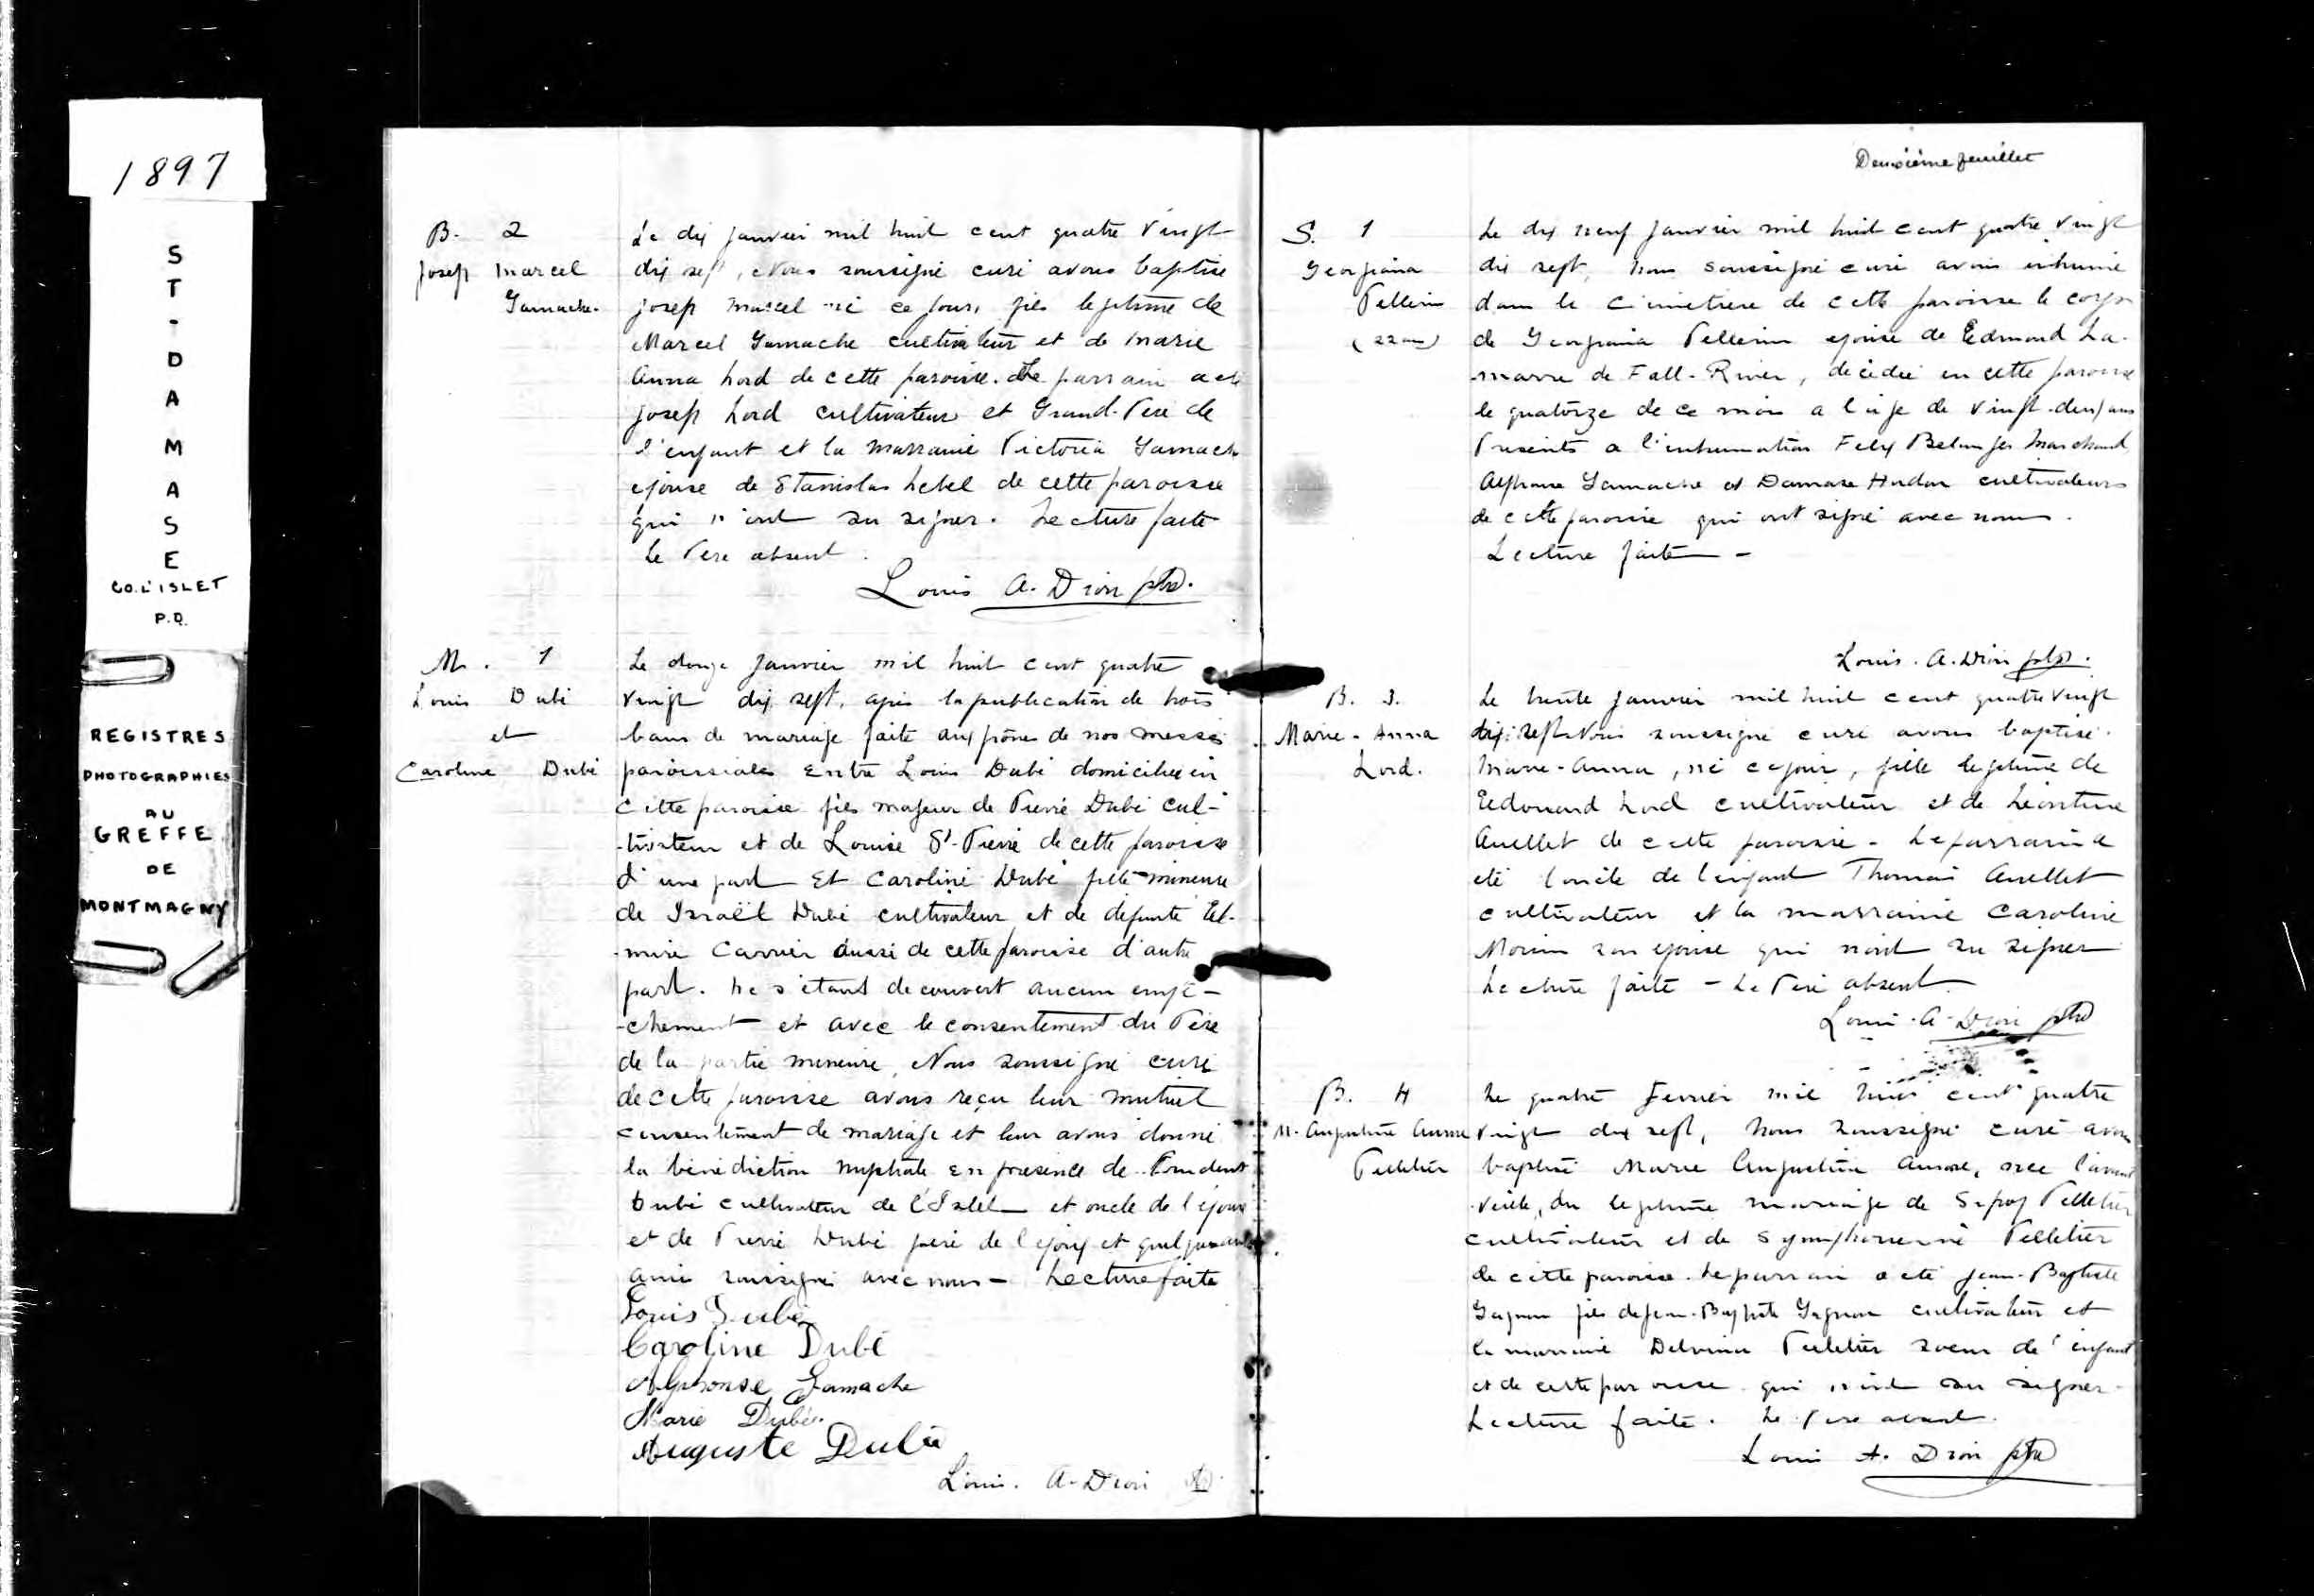 1897
ST-DAMASE
CO. L'ISLET
P.Q.
REGISTRES
PHOTOGRAPHIES
AU
GREFFE
DE
MONTMAGNY
B. 2
Josep Marcel
Gamache.
Le dix janvier mil huit cent quatre vingt
dix sept, Nous soussigné curé avons baptisé
Josep Marcel né ce jour, fils legitime de
Marcel Gamache cultivateur et de Marie
Anna Lord de cette paroisse. Le parrain a été
Josep Lord cultivateur et Grand-Père de
l'enfant et la marraine Victoria Gamache
épouse de Stanislas Lebel de cette paroisse
qui n'ont su signer. Lecture faite
Le Père absent.
Louis A. Dion ptre.
M. 1
Louis Dubé
et
Caroline Dubé
Le douze Janvier mil huit cent quatre
vingt dix sept, après la publication de trois
bans de mariage faite aux prônes de nos messes
paroissiales Entre Louis Dubé domicilié en
cette paroisse fils majeur de Pierre Dubé cul-
-tivateur et de Louise St-Pierre de cette paroisse
d'une part Et Caroline Dubé fille mineure
de Israël Dubé cultivateur et de défunte Zel-
-mire Carrier aussi de cette paroisse d'autre
part. Ne s'étant découvert aucun empê-
-chement et avec le consentement du Père
de la partie mineure, Nous soussigné curé
de cette paroisse avons reçu leur mutuel
consentement de mariage et leur avons donné
la bénédiction nuptiale en présence de Prudent
Dubé cultivateur de l'Islet et oncle de l'épouse
et de Pierre Dubé père de l'époux et quelques autres
amis soussignés avec nous - Lecture faite
Louis Dubé
Caroline Dubé
Alphonse Gamache
Marie Dubé.
Auguste Dubé
Louis. A. Dion ptre.
Deuxième feuillet
S. 1
Georgiana
Pellerin
(22 ans)
Le dix neuf janvier mil huit cent quatre vingt
dix sept, nous soussigné curé avons inhumé
dans le cimetiere de cette paroisse le corps
de Georgiana Pellerin épouse de Edmond La-
-marre de Fall-River, décédée en cette paroisse
le quatorze de ce mois a l'âge de vingt-deux ans
Présents a l'inhumation Felix Belanger Marchand
Alphonse Gamache et Damase Hudon cultivateurs
de cette paroisse qui ont signé avec nous.
Lecture faite -
Louis. A. Dion ptre.
B. 3.
Marie-Anna
Lord.
Le trente janvier mil huit cent quatre vingt
dix sept Nous soussigné curé avons baptisé
Marie-Anna, né ce jour, fille legitime de
Edouard Lord cultivateur et de Léontine
Ouellet de cette paroisse - Le parrain a
été l'oncle de l'enfant Thomas Ouellet
cultivateur et la marraine Caroline
Morin son épouse qui n'ont su signer
Lecture faite - Le Père absent
Louis-A-Dion ptre
B. 4
M. Augustine Aurore
Pelletier
Le quatre Fevrier mil huit cent quatre
vingt dix sept, Nous soussigné curé avons
baptisé Marie Augustine Aurore, née l'avant
-veille, du legitime mariage de Pelletier
cultivateur et de Symphorienne Pelletier
de cette paroisse. Le parrain a été Jean-Baptiste
Gagnon fils de Jean-Baptiste Gagnon cultivateur et
la marraine Delvina Pelletier soeur de l'enfant
et de cette paroisse qui n'ont su signer -
Lecture faite. Le Père absent.
Louis A. Dion ptre